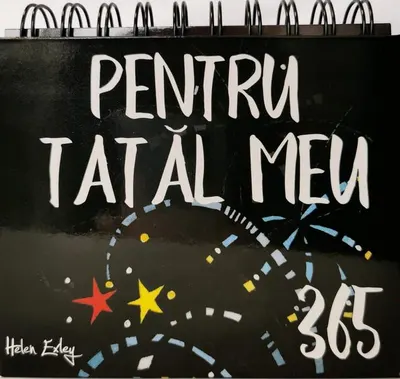 PENTRU
TATĂL MEU
365
Helen Exley